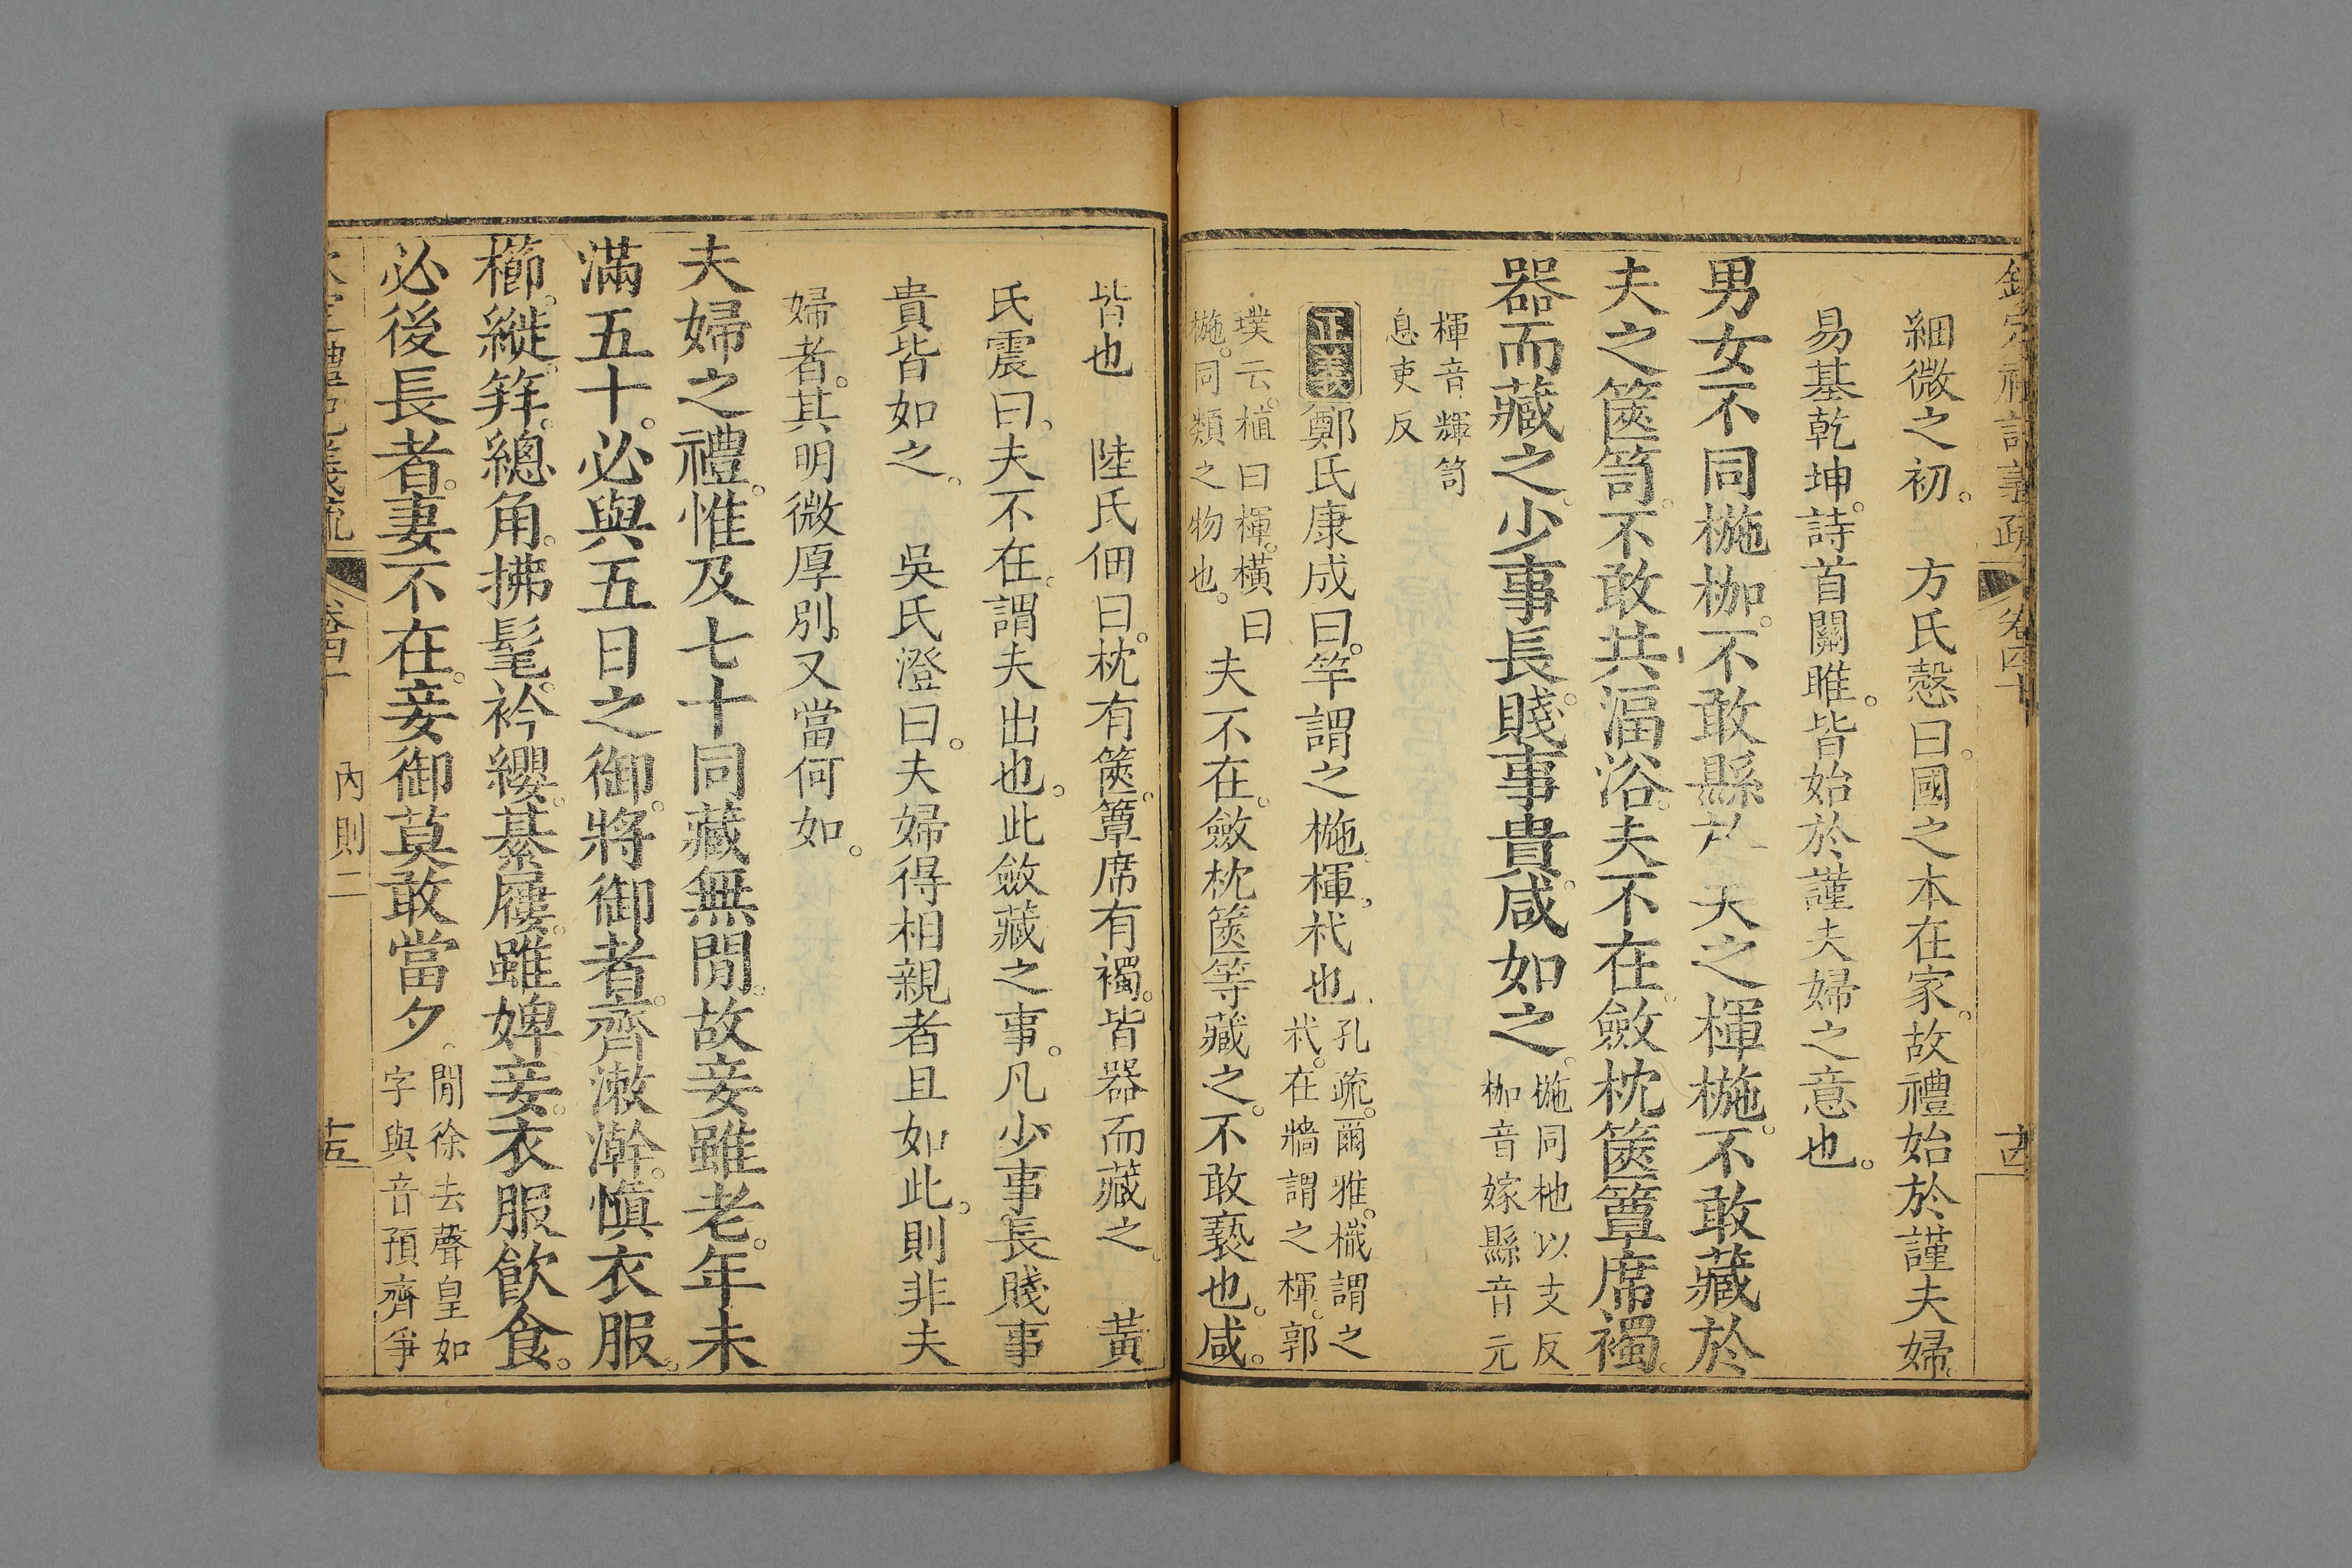 欽定禮記義疏 卷四十 十四
細微之初。 方氏慤曰。國之本在家。故禮始於謹夫婦。
易基乾坤。詩首關雎。皆始於謹夫婦之意也。
男女不同椸枷。不敢縣於夫之楎椸。不敢藏於
夫之篋笥。不敢共湢浴。夫不在。斂枕篋簟席襡。
器而藏之。少事長。賤事貴。咸如之。
椸同杝以支反
枷音嫁縣音元
楎音輝笥
息吏反
正義鄭氏康成曰。竿謂之椸。楎。杙也。
孔疏。爾雅。樴謂之
杙。在牆謂之楎。郭
璞云。植曰楎。橫曰
椸。同類之物也。
夫不在。斂枕篋等藏之。不敢褻也。咸。
皆也 陸氏佃曰。枕有篋。簟席有襡。皆器而藏之。 黃
氏震曰。夫不在。謂夫出也。此斂藏之事。凡少事長賤事
貴皆如之。 吳氏澄曰。夫婦得相親者且如此。則非夫
婦者。其明微厚別。又當何如。
夫婦之禮。惟及七十同藏無閒。故妾雖老。年未
滿五十。必與五日之御。將御者。齊漱澣。慎衣服。
櫛。縰。笄。總角。拂髦。衿纓。綦屨。雖婢妾。衣服飲食。
必後長者。妻不在。妾御莫敢當夕。
閒徐去聲皇如
字與音預齊爭
欽定禮記義疏 卷四十 內則二 十五